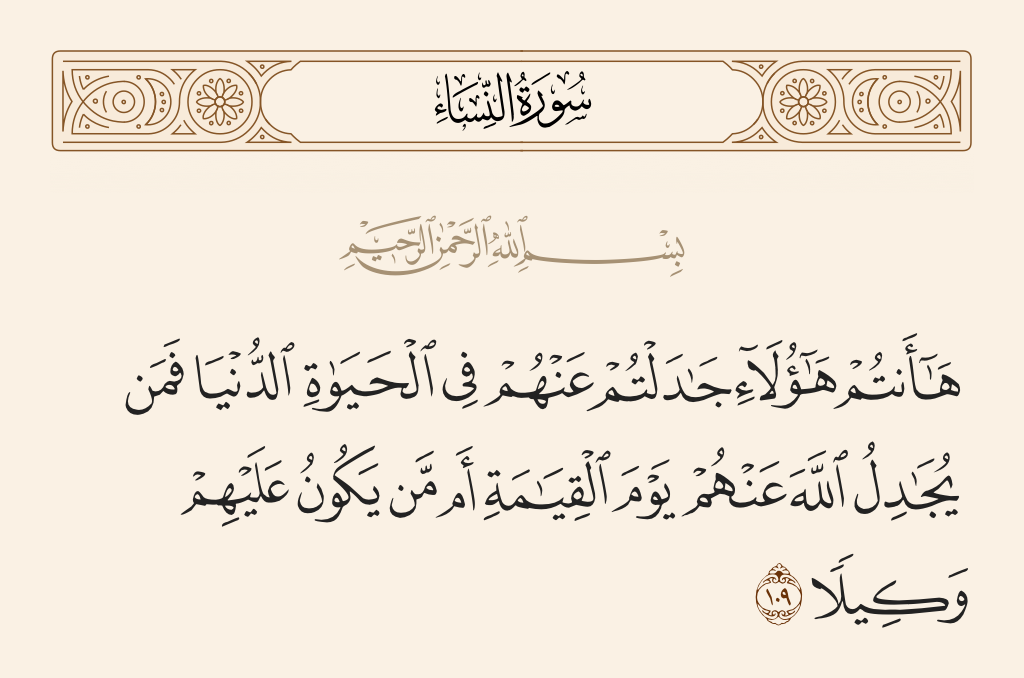 سُورَةُ النِّسَاءِ
بِسْمِ ٱللَّهِ ٱلرَّحْمَٰنِ ٱلرَّحِيمِ
هَـٰٓأَنتُمْ هَـٰٓؤُلَآءِ جَـٰدَلْتُمْ عَنْهُمْ فِى ٱلْحَيَوٰةِ ٱلدُّنْيَا فَمَن
يُجَـٰدِلُ ٱللَّهَ عَنْهُمْ يَوْمَ ٱلْقِيَـٰمَةِ أَم مَّن يَكُونُ عَلَيْهِمْ
وَكِيلًا ١٠٩